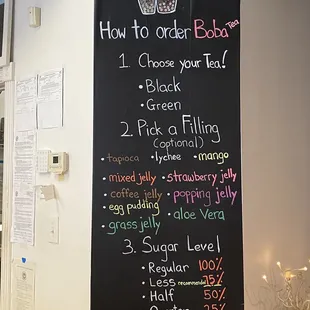 How to order Boba Tea
1. Choose your Tea!
• Black
• Green
2. Pick a Filling
(optional)
• tapioca • lychee • mango
• mixed jelly • strawberry jelly
• coffee jelly • popping jelly
• egg pudding • aloe Vera
• grass jelly
3. Sugar Level
• Regular 100%
• Less recommended 75%
• Half 50%
• Quarter 25%